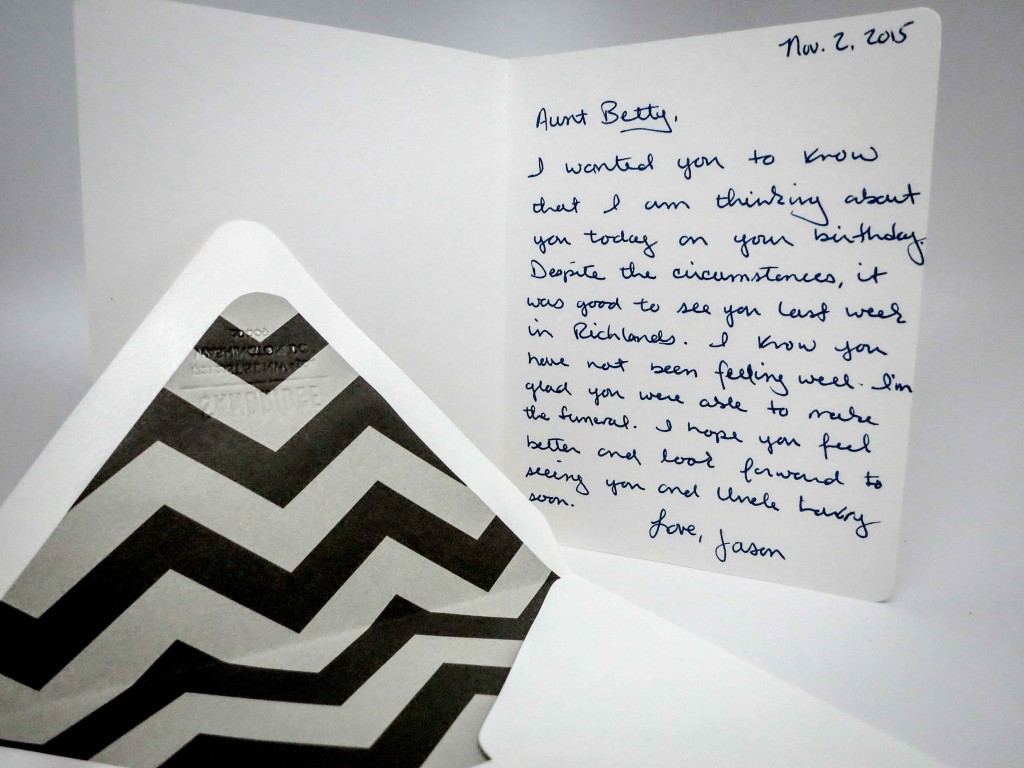 Nov. 2, 2015
Aunt Betty,
I wanted you to know
that I am thinking about
you today on your birthday.
Despite the circumstances, it
was good to see you last week
in Richlands. I know you
have not been feeling well. I'm
glad you were able to make
the funeral. I hope you feel
better and look forward to
seeing you and Uncle Larry
soon.
Love, Jason
WASHINGTON DC